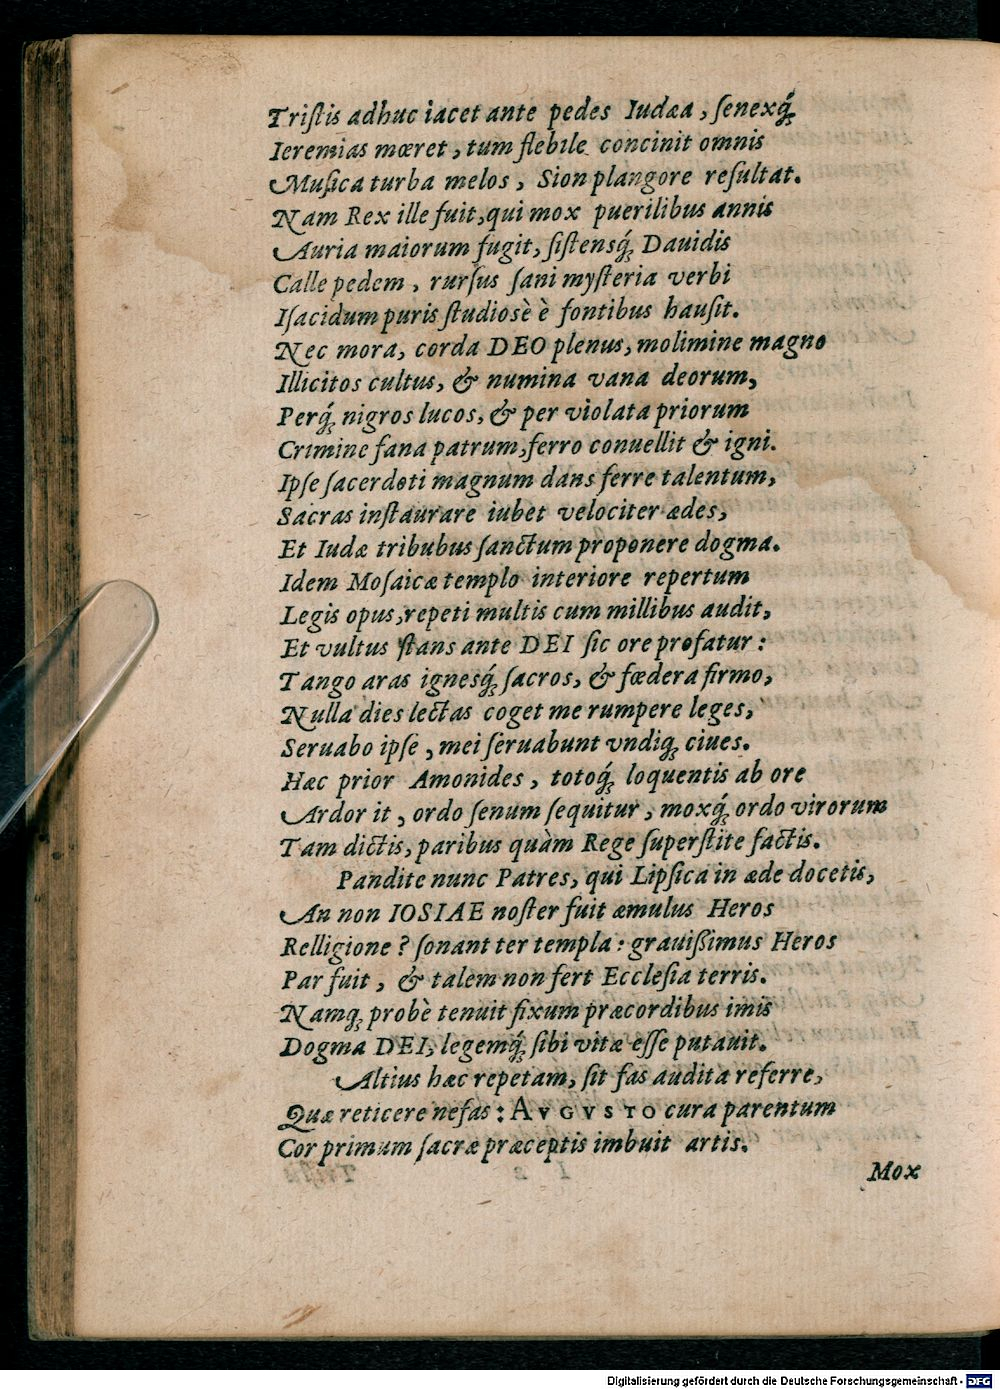 Triſtis adhuc iacet ante pedes Iudæa, ſenexq́ꝫ
Ieremias mœret, tum flebile concinit omnis
Muſica turba melos, Sion plangore reſultat.
Nam Rex ille fuit, qui mox puerilibus annis
Auria maiorum fugit, ſiſtensq́ꝫ Dauidis
Calle pedem, rurſus ſani myſteria verbi
Iſacidum puris ſtudiosè è fontibus hauſit.
Nec mora, corda DEO plenus, molimine magno
Illicitos cultus, & numina vana deorum,
Perq́ꝫ nigros lucos, & per violata priorum
Crimine fana patrum, ferro conuellit & igni.
Ipſe ſacerdoti magnum dans ferre talentum,
Sacras inſtaurare iubet velociter ædes,
Et Iudæ tribubus ſanctum proponere dogma.
Idem Moſaicæ templo interiore repertum
Legis opus, repeti multis cum millibus audit,
Et vultus ſtans ante DEI ſic ore profatur:
Tango aras ignesq́ꝫ ſacros, & fœdera firmo,
Nulla dies lectas coget me rumpere leges,
Seruabo ipſe, mei ſeruabunt vndiqꝫ ciues.
Hæc prior Amonides, totoq́ꝫ loquentis ab ore
Ardor it, ordo ſenum ſequitur, moxq́ꝫ ordo virorum
Tam dictis, paribus quàm Rege ſuperſtite factis.
Pandite nunc Patres, qui Lipſica in æde docetis,
An non IOSIAE noſter fuit æmulus Heros
Relligione? ſonant ter templa: grauißimus Heros
Par fuit, & talem non fert Eccleſia terris.
Namqꝫ probè tenuit fixum præcordibus imis
Dogma DEI, legemq́ꝫ ſibi vitæ eſſe putauit.
Altius hæc repetam, ſit fas audita referre,
Quæ reticere nefas: AVGVSTO cura parentum
Cor primum ſacræ præceptis imbuit artis.
Mox
Digitalisierung gefördert durch die Deutsche Forschungsgemeinschaft - DFG